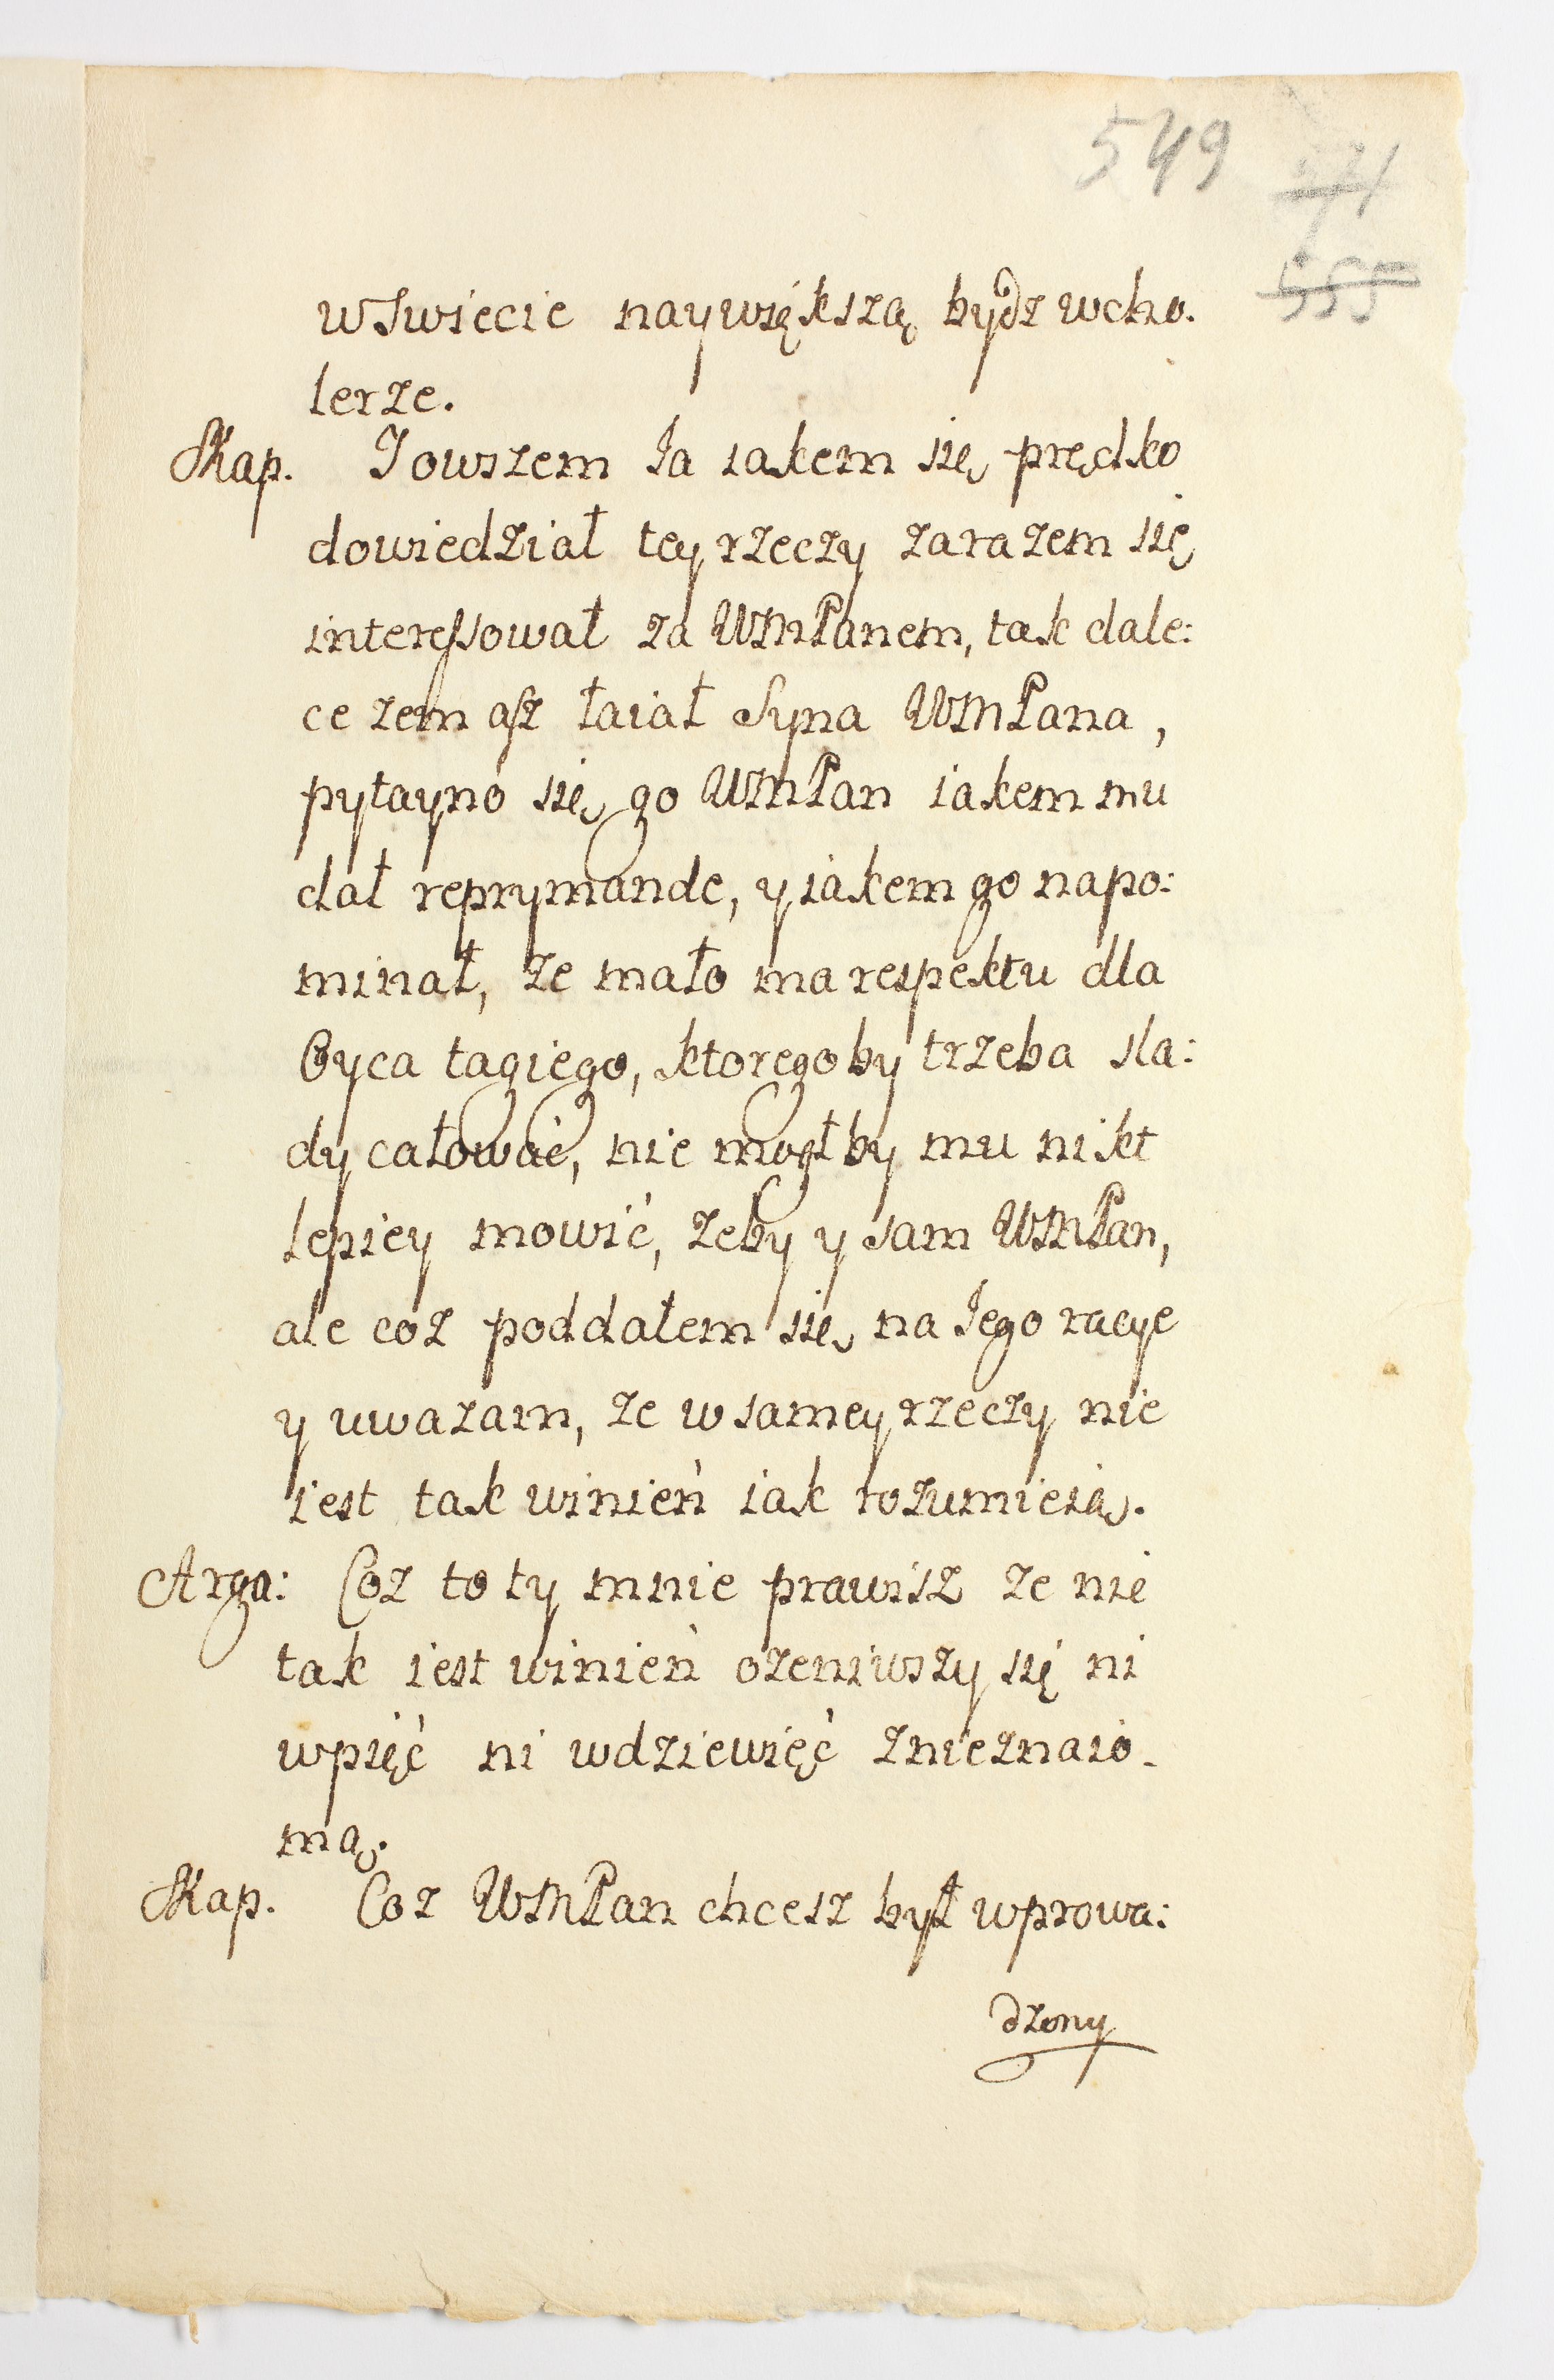 549
555
wswiecie naywiększą bydz wcho.
lerze.
Skap. Jowszem Ja iakem się prędko
dowiedział tey rzeczy zarazem się
interessował za WMPanem, tak dale:
ce zem asz łaiał Syna WMPana,
pytayno się go WMPan iakem mu
dał reprymande, y iakem go napo:
minał, ze mało ma respektu dla
Oyca tagiego, ktorego by trzeba sla:
dy całować, nie mogł by mu nikt
lepiey mowić, zeby y sam WMPan,
ale coz poddałem się na Jego racye
y uwazam, ze w samey rzeczy nie
iest tak winień iak rozumieią.
Arga: Coz to ty mnie prawisz ze nie
tak iest winień ozeniwszy się ni
wpięć ni wdziewięć znieznaio-
mą.
Skap. Coz WMPan chcesz był wprowa:
dzony